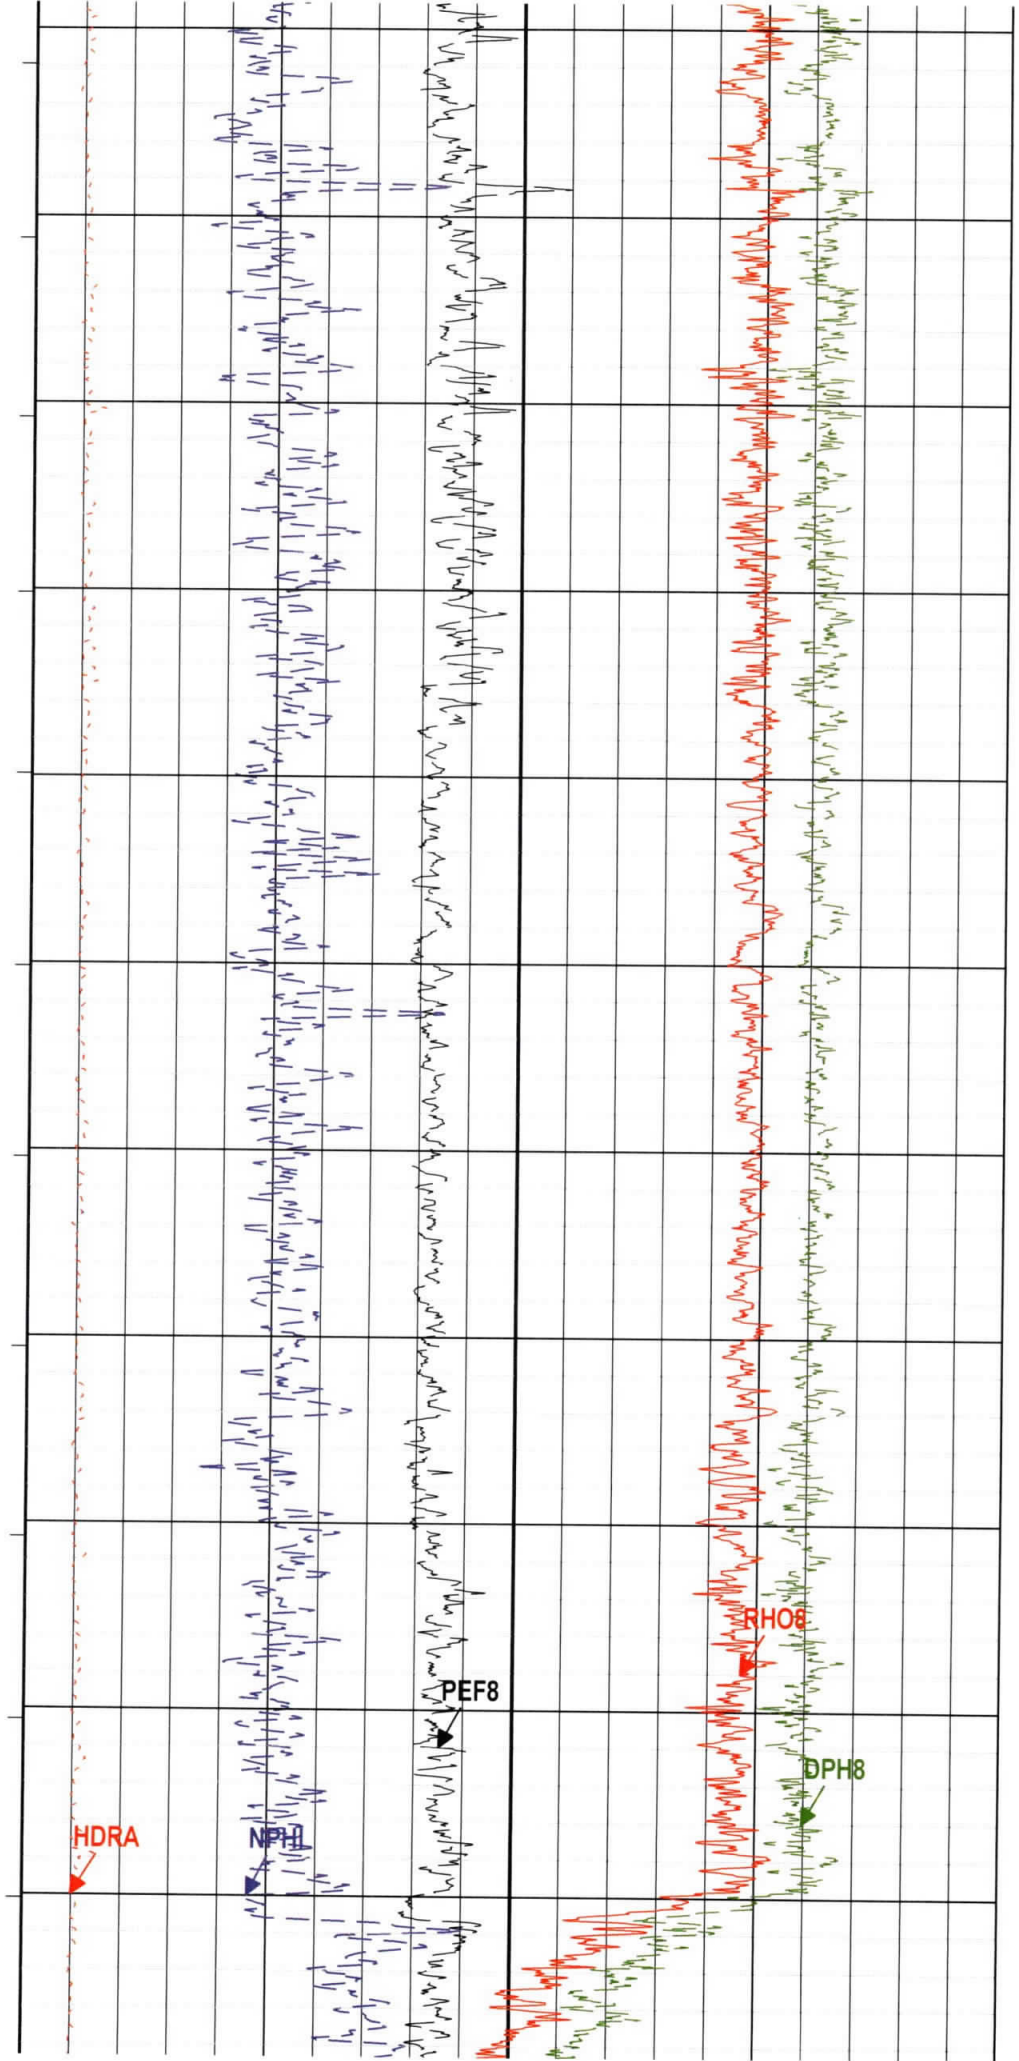 RHO8
PEF8
DPH8
HDRA
NPHI